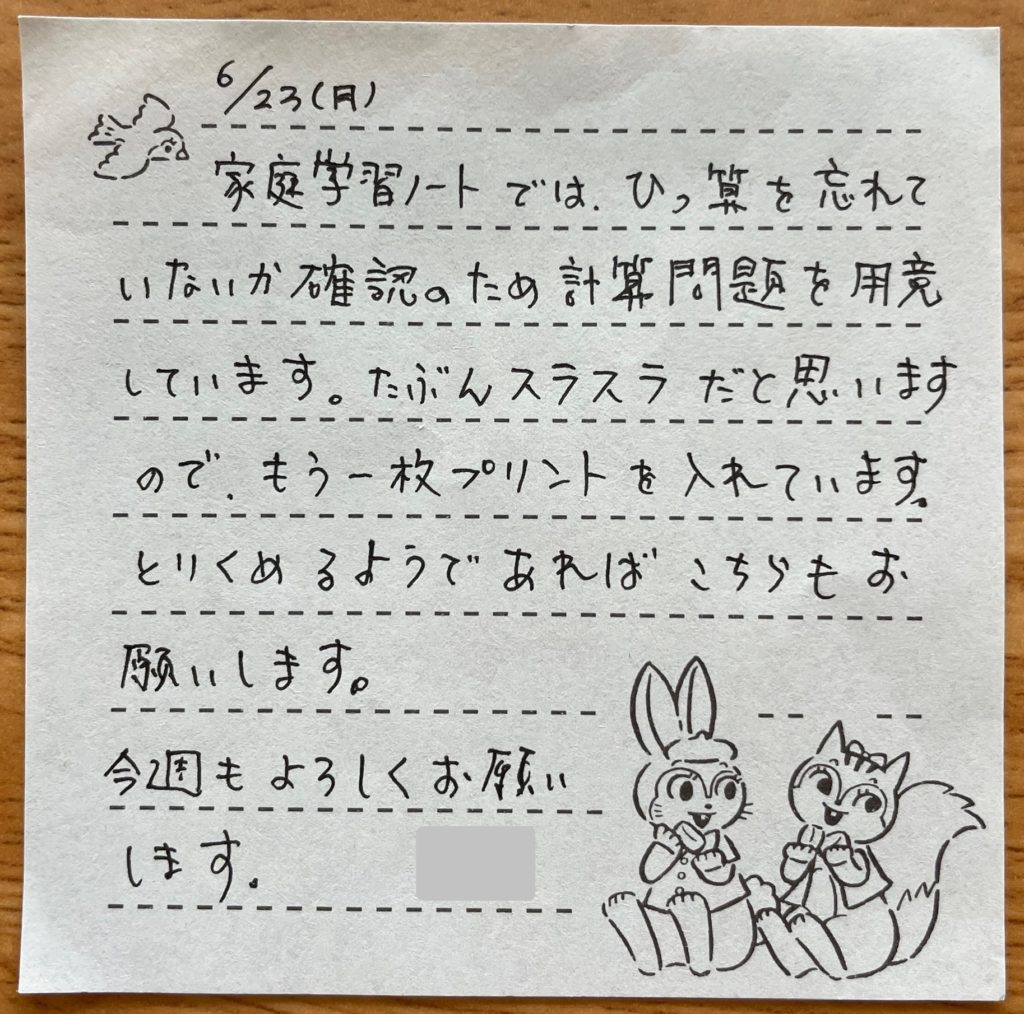 6/23(月)
家庭学習ノートでは、ひっ算を忘れて
いないか確認のため計算問題を用意
しています。たぶんスラスラだと思います
ので、もう一枚プリントを入れています。
とりくめるようであればこちらもお
願いします。
今週もよろしくお願い
します。